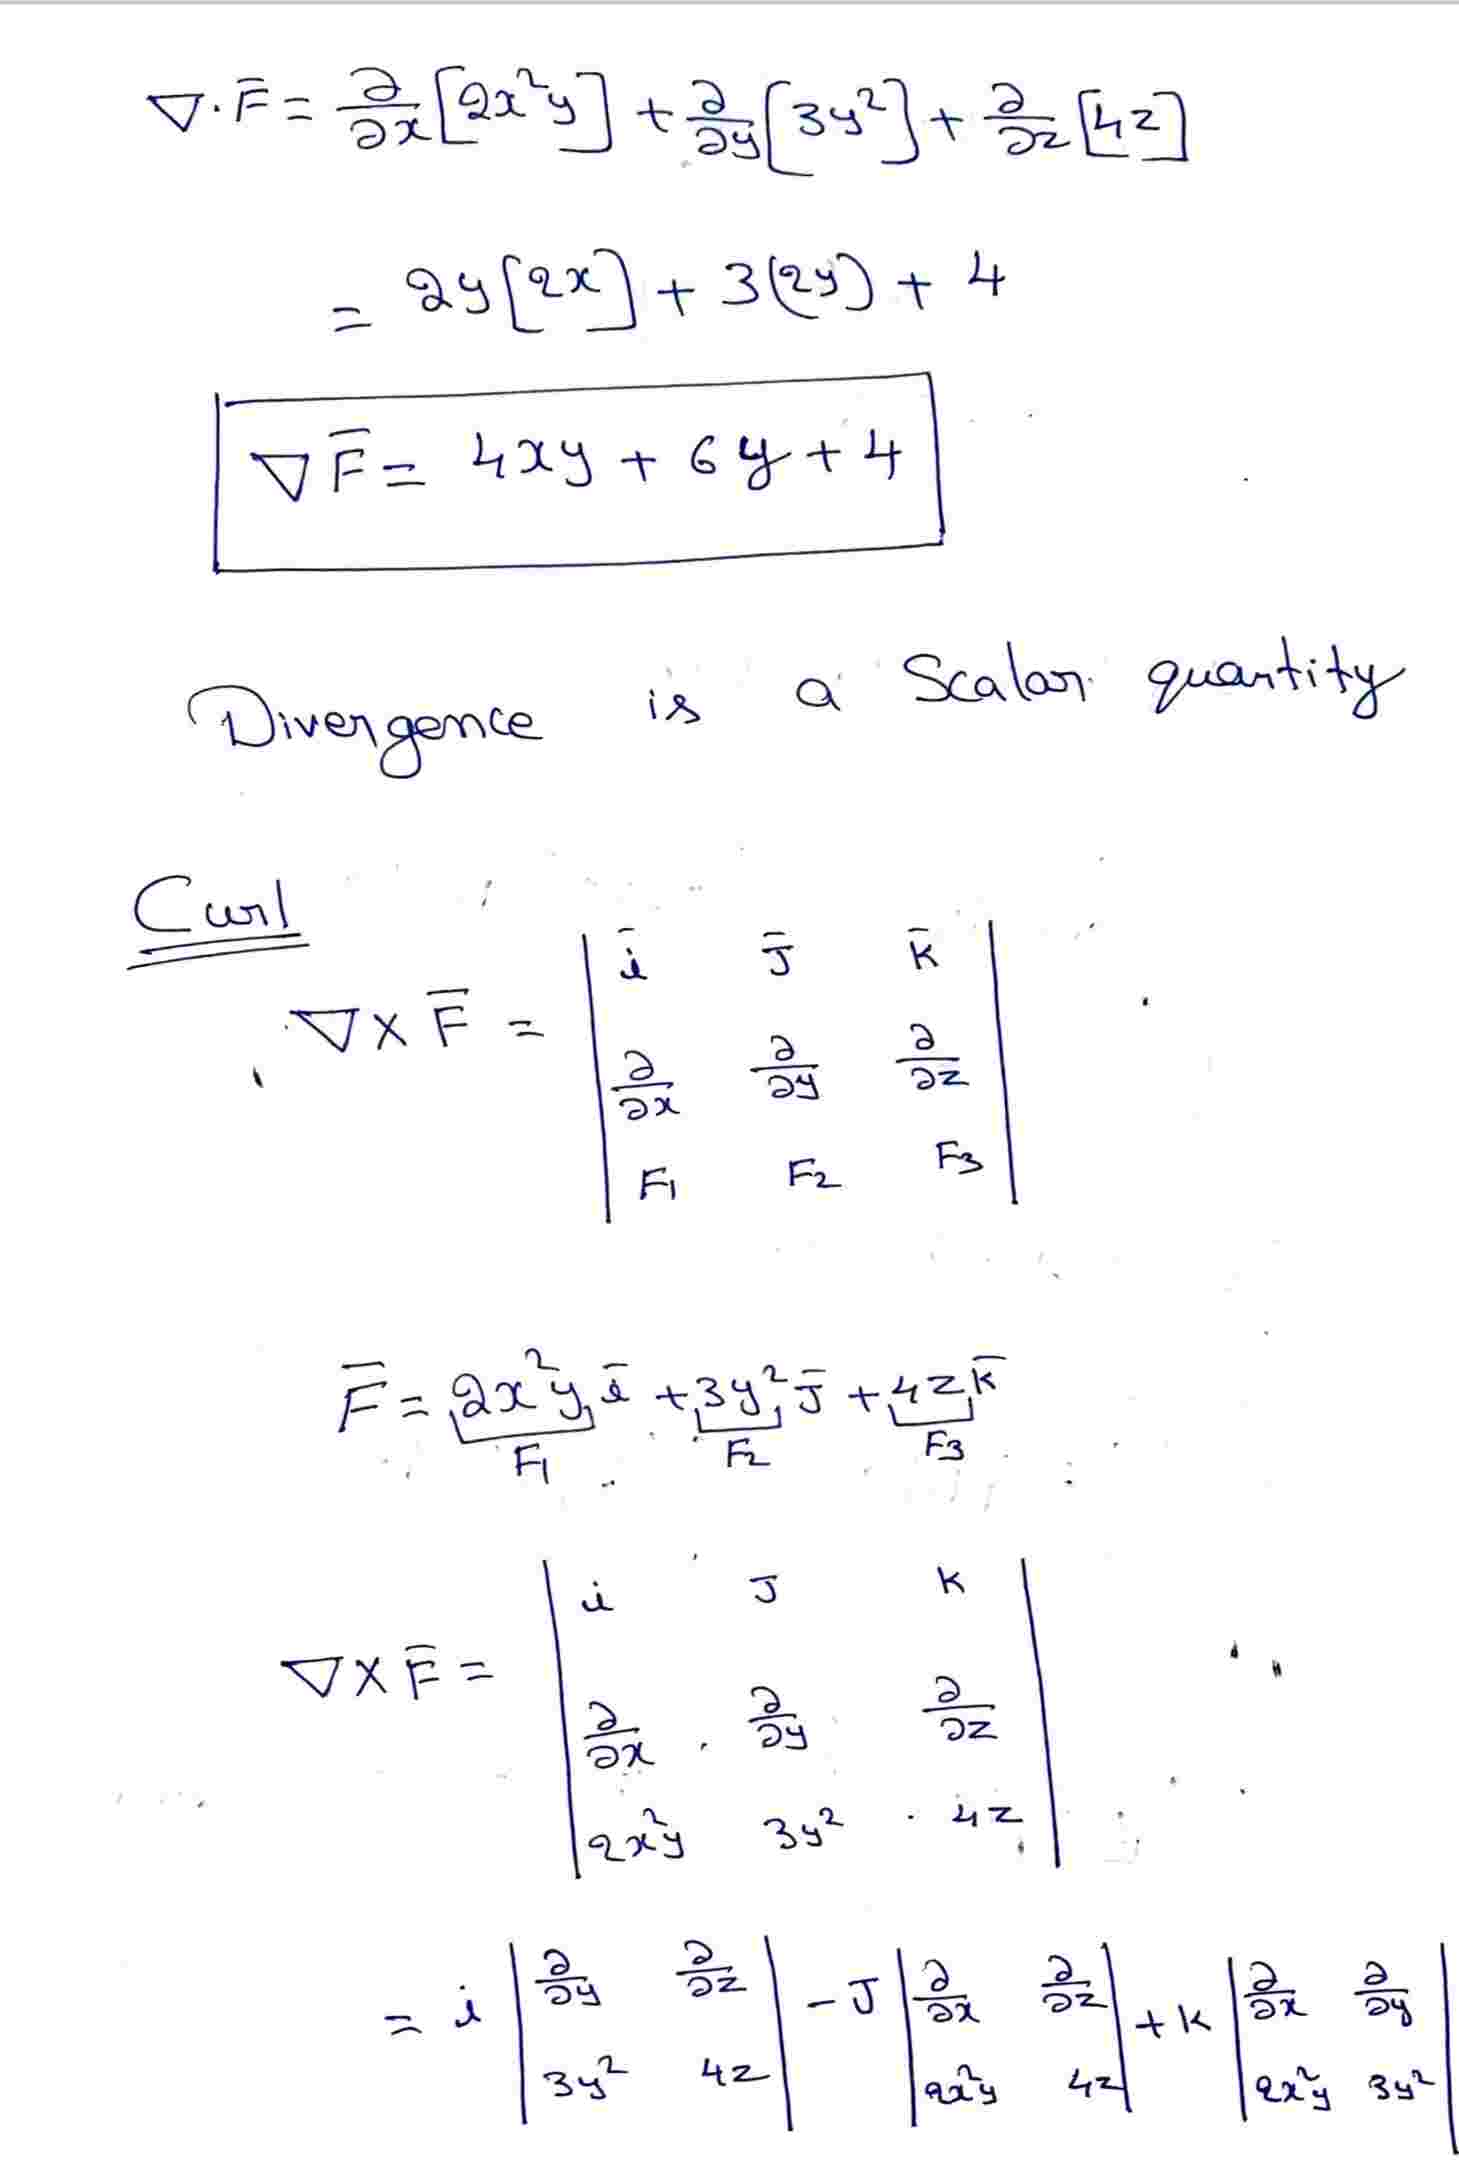 ∇·F̄ = ∂/∂x [2x²y] + ∂/∂y [3y²] + ∂/∂z [4z]
= 2y[2x] + 3(2y) + 4
∇F̄ = 4xy + 6y + 4
Divergence is a Scalar quantity
Curl
∇×F̄ = | ī J̄ k̄ |
| ∂/∂x ∂/∂y ∂/∂z |
| F₁ F₂ F₃ |
F̄ = 2x²y ī + 3y² J̄ + 4z k̄
F₁ F₂ F₃
∇×F̄ = | i J k |
| ∂/∂x ∂/∂y ∂/∂z |
| 2x²y 3y² 4z |
= i | ∂/∂y ∂/∂z | - J | ∂/∂x ∂/∂z | + k | ∂/∂x ∂/∂y |
| 3y² 4z | | 2x²y 4z | | 2x²y 3y² |